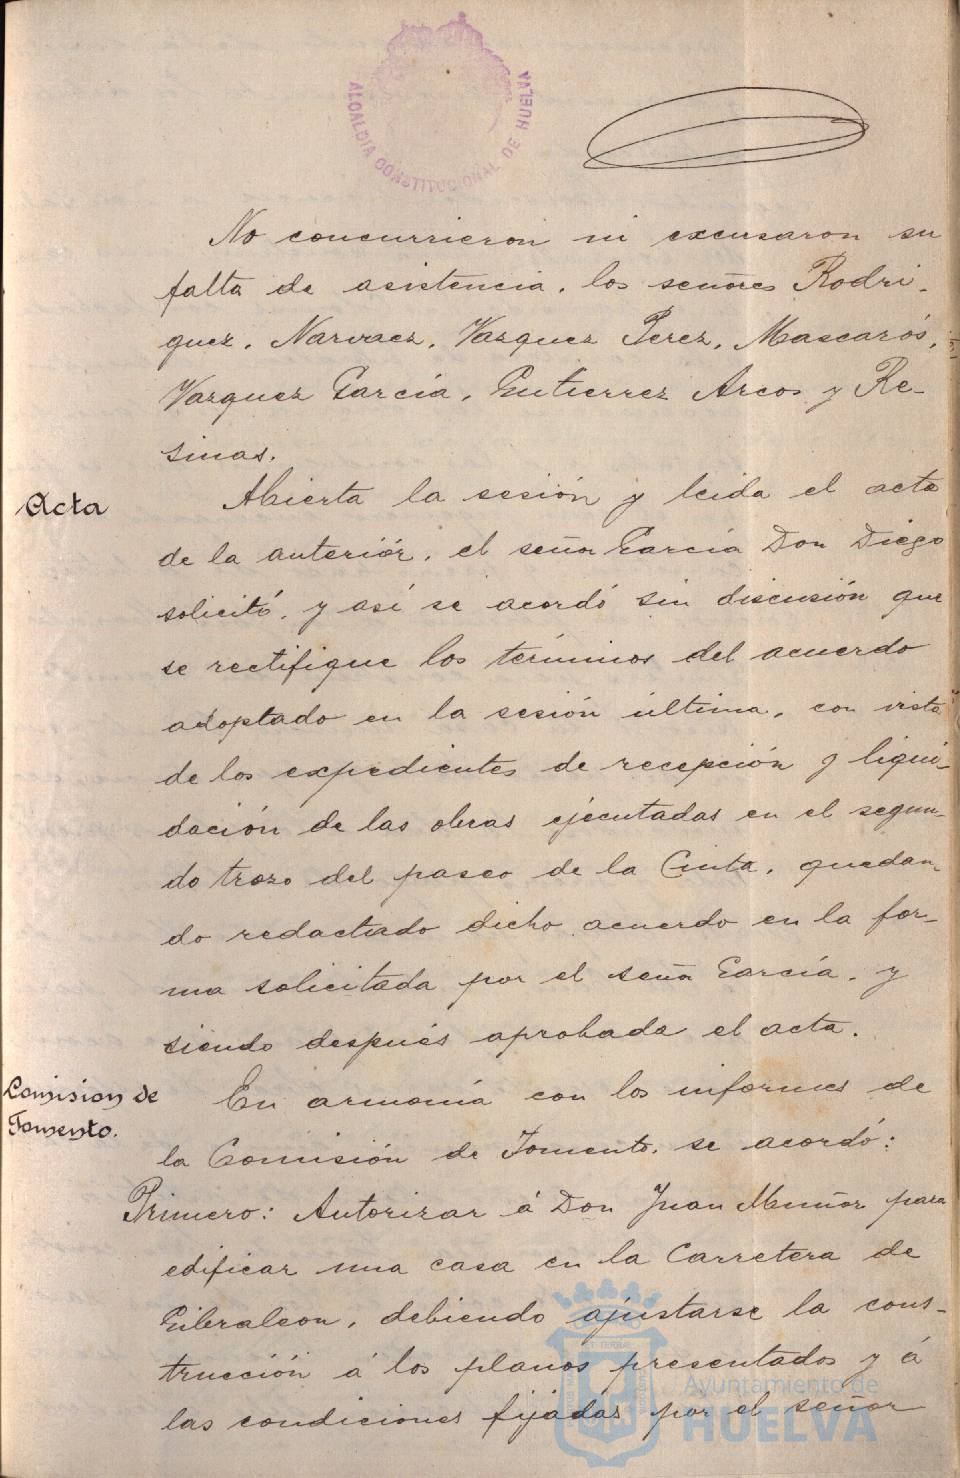 ALCALDIA CONSTITUCIONAL DE HUELVA
No concurrieron ni excusaron su
falta de asistencia, los señores Rodri-
guez, Narvaez, Vazquez Perez, Mascarós,
Vazquez García, Gutierrez Arcos y Re-
sinas.
Acta
Abierta la sesión y leida el acta
de la anteriór, el señor García Don Diego
solicitó, y así se acordó sin discusión que
se rectifique los términos del acuerdo
adoptado en la sesión última, con vista
de los expedientes de recepción y liqui-
dación de las obras ejecutadas en el segun-
do trozo del paseo de la Cinta, quedan-
do redactado dicho acuerdo en la for-
ma solicitada por el señor García, y
siendo después aprobada el acta.
Comision de
Fomento.
En armonía con los informes de
la Comisión de Fomento, se acordó:
Primero: Autorizar á Don Juan Muñoz para
edificar una casa en la Carretera de
Gibraleon, debiendo ajustarse la cons-
trucción á los planos presentados y á
las condiciones fijadas por el señor
Ayuntamiento de
HUELVA